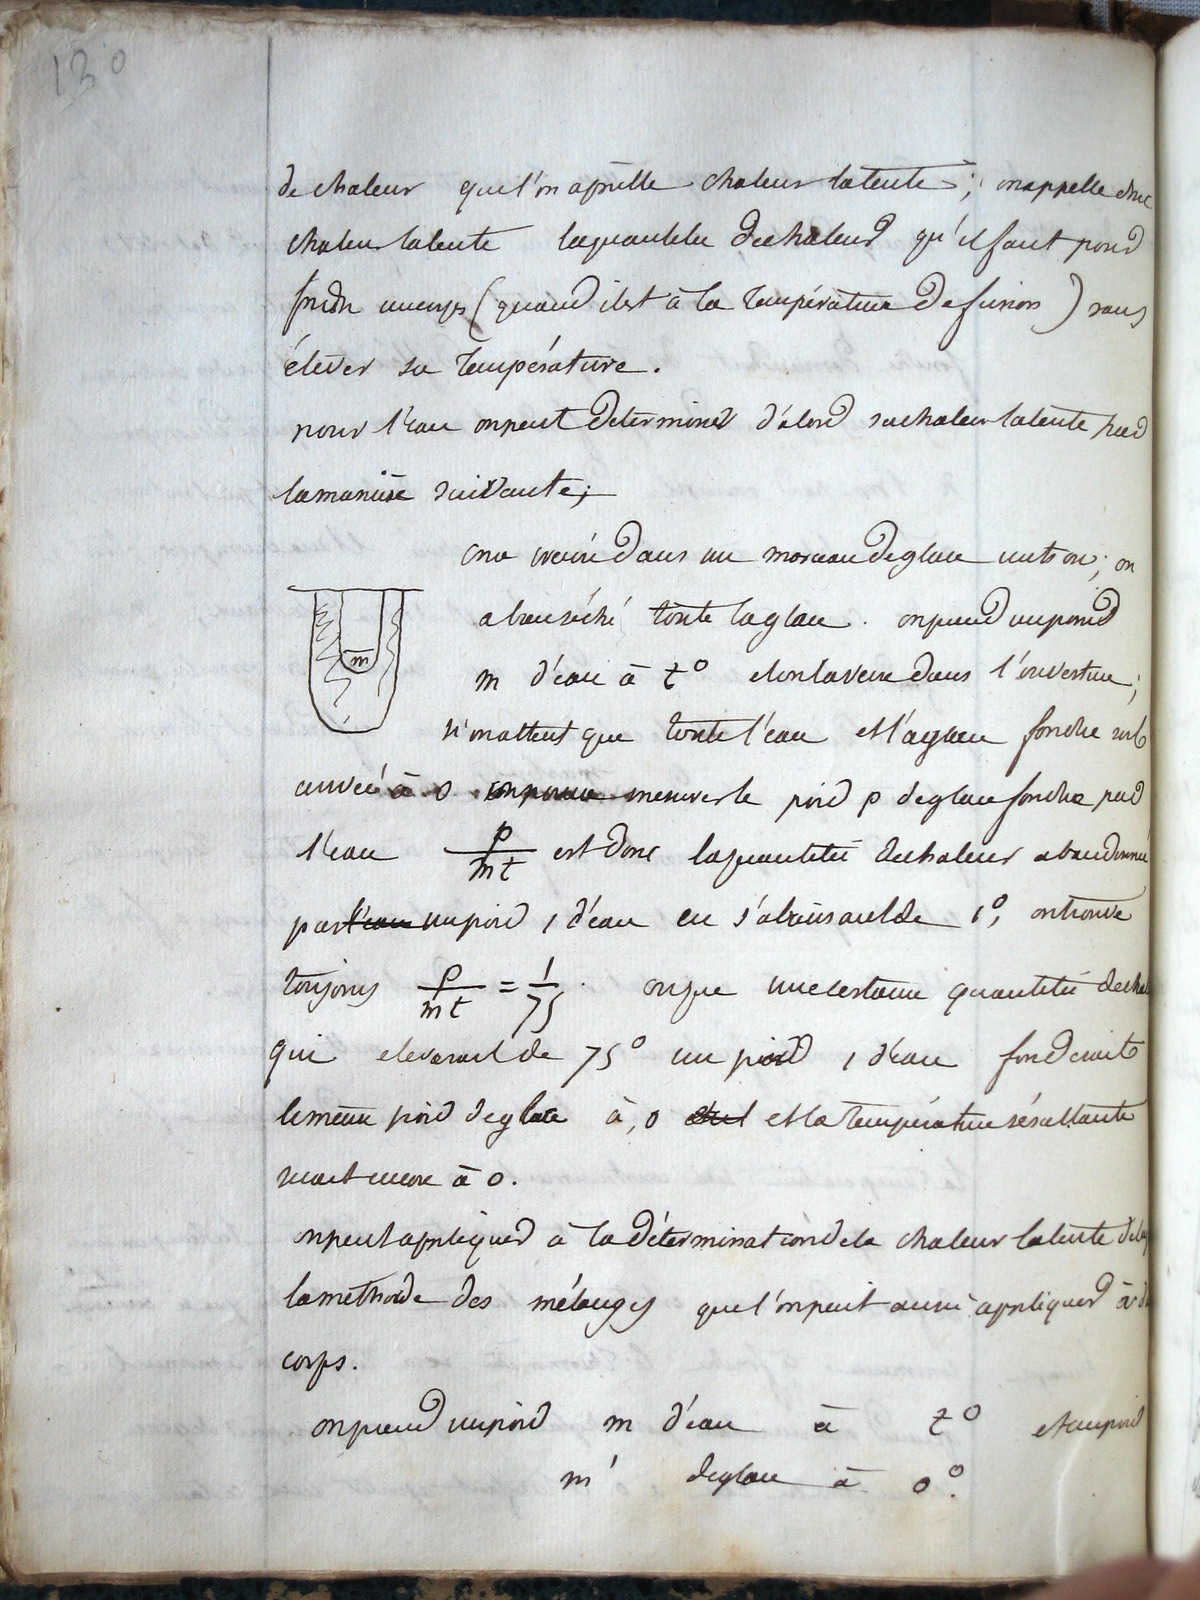 130
de chaleur que l'on appelle chaleur latente; on appelle donc
chaleur latente la quantitée de chaleur qu'il faut pour
fondre un corps (quand il est à la température de fusion) sans
élever sa température.
pour l'eau on peut determiner d'abord sa chaleur latente par
la manière suivante;
on a creusé dans un morceau de glace un trou; on
a bien séché toute la glace. on prend un poid
m d'eau à t° et on la verse dans l'ouverture;
m
n'ont attent que toute l'eau et la glace fondue soit
arrivée à 0 mesurer le poid p de glace fondue par
l'eau p/mt est donc la quantitée de chaleur abandonnée
par l'eau un poid 1 d'eau en s'abaissant de 1°, on trouve
toujours p/mt = 1/75. une certaine quantitée de cha
qui eleverait de 75° un poid 1 d'eau fonderait
le même poid de glace à 0 et la température résultante
serait encore à 0.
on peut appliquer à la détermination de la chaleur latente de
la méthode des mélanges que l'on peut aussi appliquer à
corps.
on prend un poid m d'eau à t° et un poid
m' de glace à 0°.